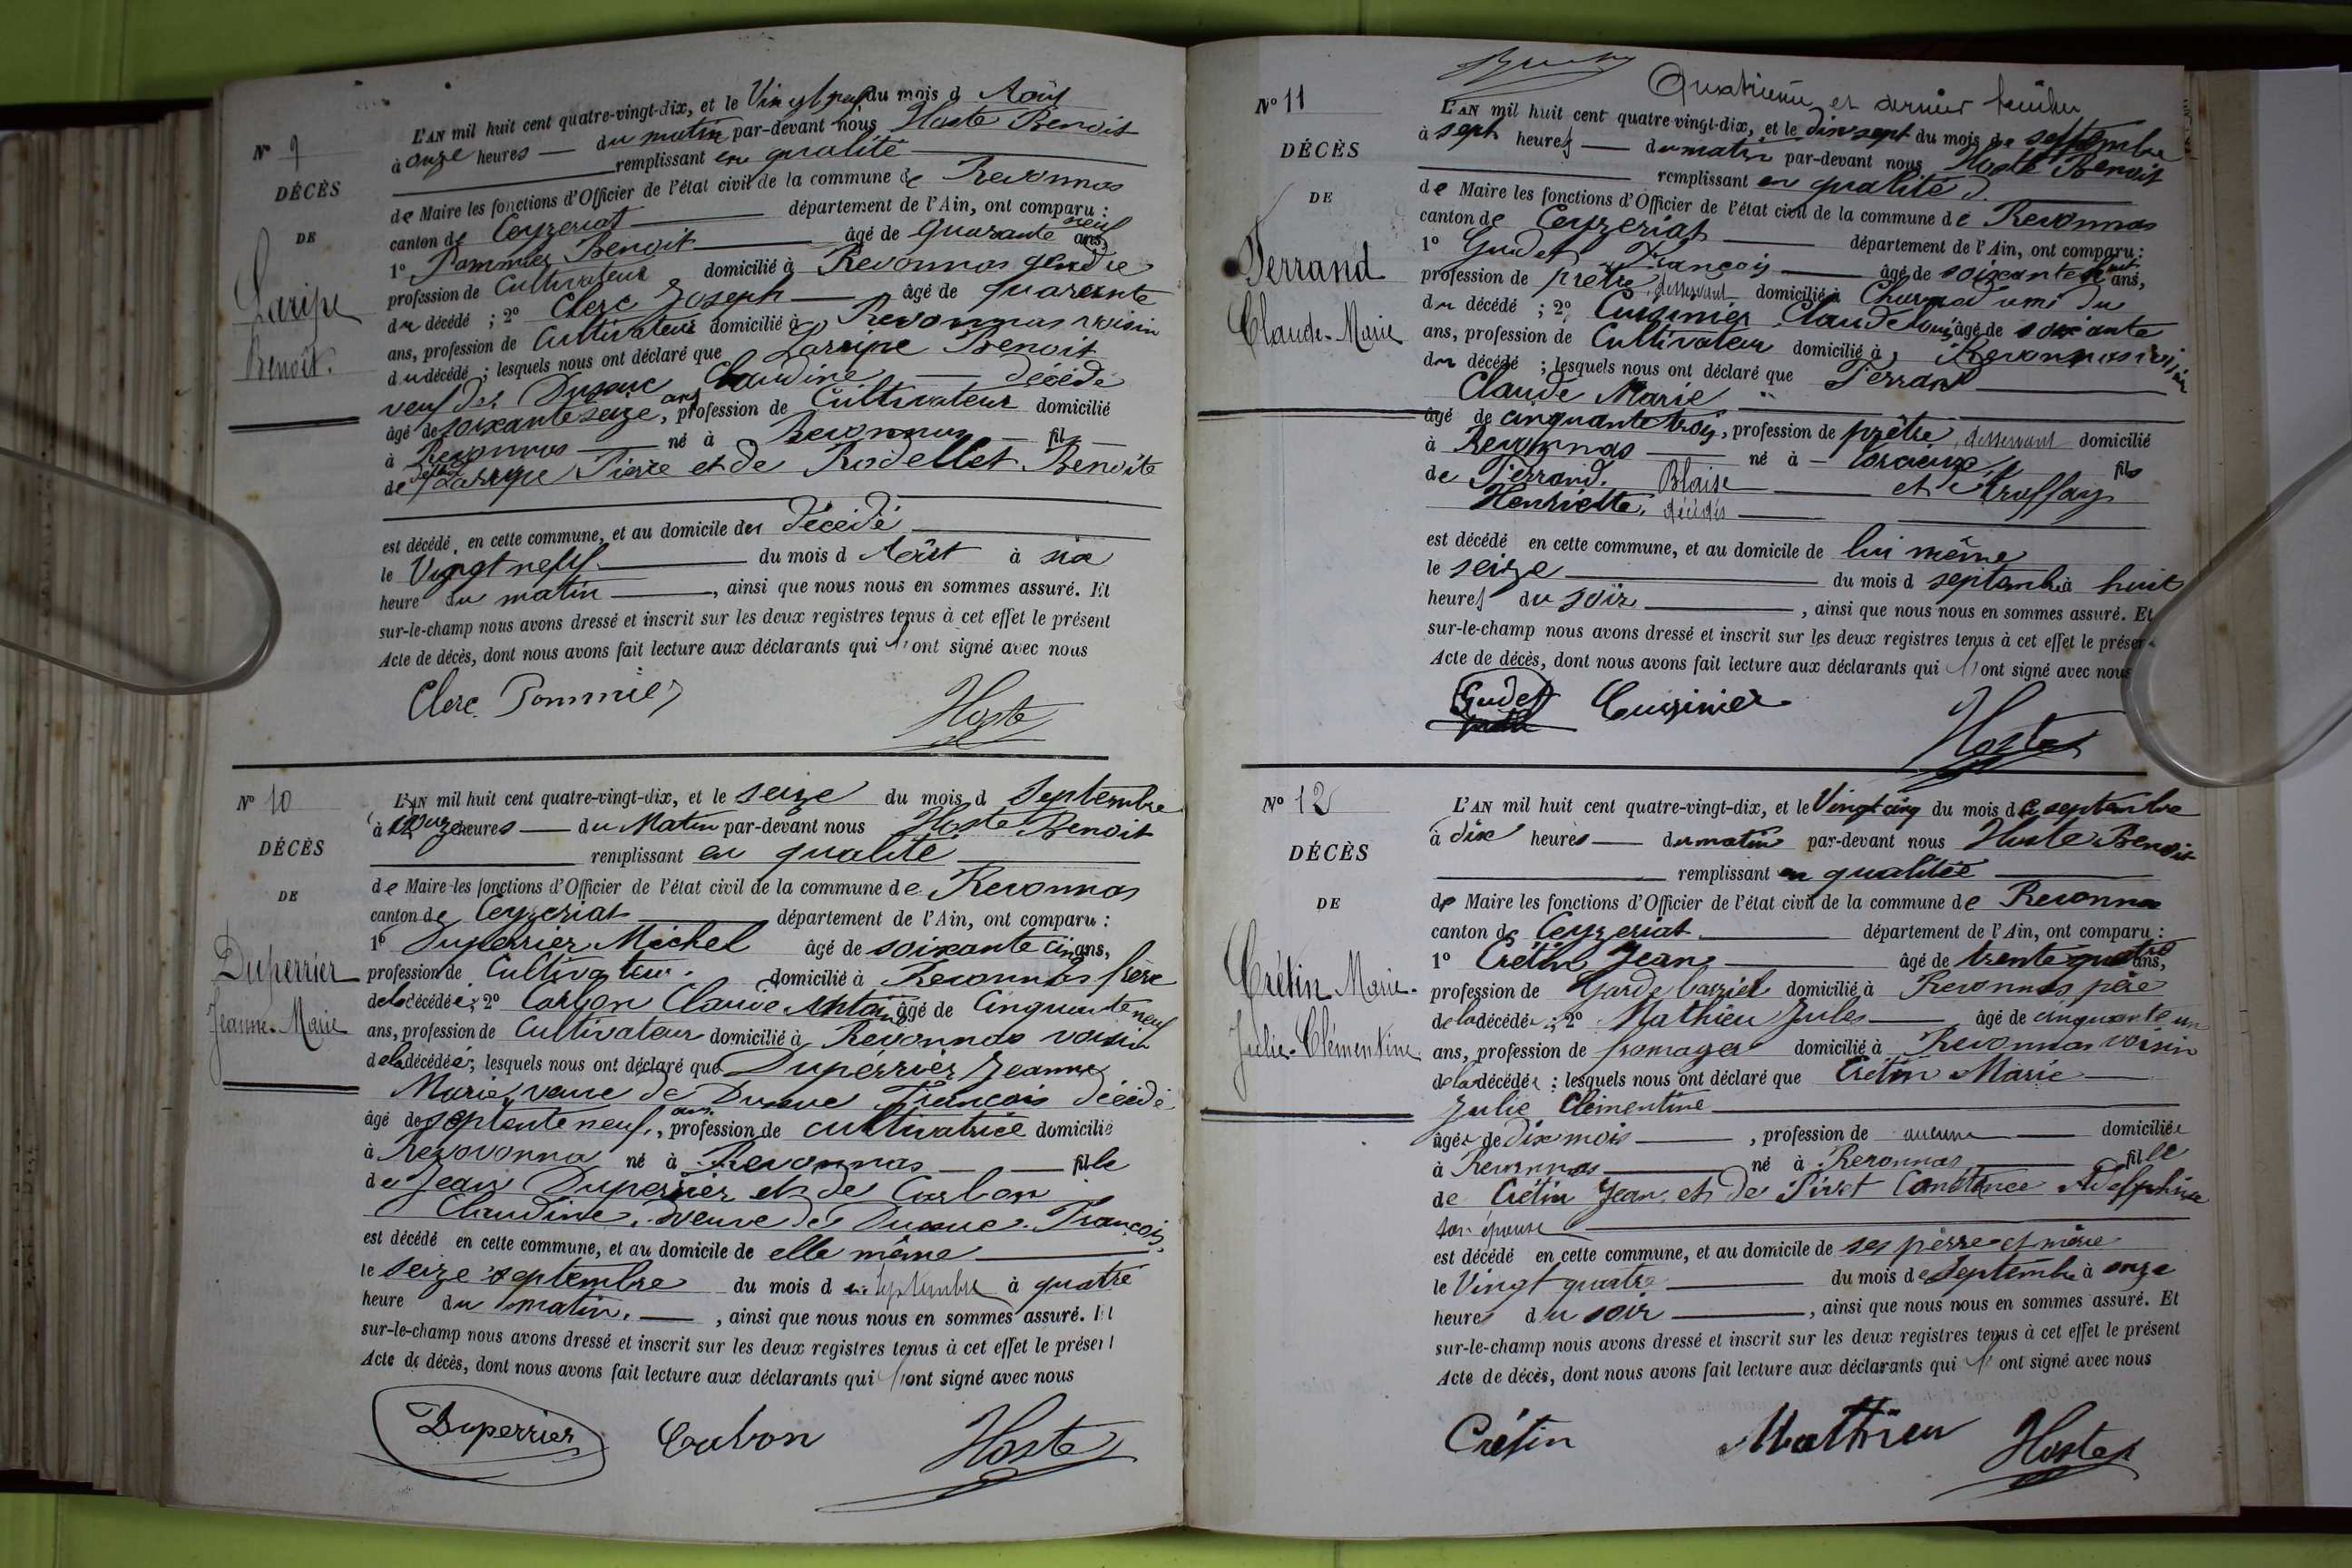 N° 9
DÉCÈS
DE
Laripe
Benoît.
L'AN mil huit cent quatre-vingt-dix, et le Vingt neuf du mois d Août
à onze heures — du matin par-devant nous Hoste Benoit
remplissant en qualité
de Maire les fonctions d'Officier de l'état civil de la commune de Revonnas
canton de Ceyzeriat département de l'Ain, ont comparu :
1° Pommier Benoit âgé de quarante neuf ans,
profession de Cultivateur domicilié à Revonnas gendre
du décédé ; 2° Clerc Joseph âgé de quarante
ans, profession de Cultivateur domicilié à Revonnas voisin
du décédé ; lesquels nous ont déclaré que Larripe Benoit
veuf de Claudine — décédé
âgé de soixante seize ans, profession de Cultivateur domicilié
à Revonnas né à Revonnas fils
de Larripe Pierre et de Rodellet Benoite
est décédé, en cette commune, et au domicile de décédé
le Vingt neuf du mois d Août à six
heure du matin, ainsi que nous nous en sommes assuré. Et
sur-le-champ nous avons dressé et inscrit sur les deux registres tenus à cet effet le présent
Acte de décès, dont nous avons fait lecture aux déclarants qui l'ont signé avec nous
Clerc Pommier Hoste
N° 10
DÉCÈS
DE
Duperrier
Jeanne-Marie
L'AN mil huit cent quatre-vingt-dix, et le seize du mois d Septembre
à heures — du Matin par-devant nous Hoste Benoit
remplissant en qualité
de Maire les fonctions d'Officier de l'état civil de la commune de Revonnas
canton de Ceyzeriat département de l'Ain, ont comparu :
1° Duperrier Michel âgé de soixante cinq ans,
profession de Cultivateur. domicilié à Revonnas frère
de la décédée ; 2° Carbon Claude Antoine âgé de Cinquante neuf
ans, profession de Cultivateur domicilié à Revonnas voisin
de la décédée ; lesquels nous ont déclaré que Dupérrier Jeanne
Marie, veuve de François décédé
âgé de septente neuf ans, profession de cultivatrice domicilié
à Revovonna né à Revonnas fille
de Jean Duperrier et de Carbon
Claudine. veuve de François,
est décédé en cette commune, et au domicile de elle même
le seize septembre du mois d septembre à quatre
heure du matin. —, ainsi que nous nous en sommes assuré. Et
sur-le-champ nous avons dressé et inscrit sur les deux registres tenus à cet effet le présent
Acte de décès, dont nous avons fait lecture aux déclarants qui l'ont signé avec nous
Duperrier Carbon Hoste
Quatrième et dernier feuillet
N° 11
DÉCÈS
DE
Ferrand
Claude-Marie
L'AN mil huit cent quatre-vingt-dix, et le dix sept du mois de septembre
à sept heures — du matin par-devant nous Hoste Benoit
remplissant en qualité d
de Maire les fonctions d'Officier de l'état civil de la commune de Revonnas
canton de Ceyzeriat département de l'Ain, ont comparu :
1° Gudet François âgé de soixante huit ans,
profession de prêtre desservant domicilié à ami du
du décédé ; 2° Cuisinier Claude Louis âgé de soixante
ans, profession de Cultivateur domicilié à Revonnas voisin
du décédé ; lesquels nous ont déclaré que Ferrand
Claude Marie
âgé de cinquante trois, profession de prêtre desservant domicilié
à Revonnas né à fils
de Ferrand. Blaise et
Henriette. décédés
est décédé en cette commune, et au domicile de lui même
le seize du mois d septembre à huit
heures du soir, ainsi que nous nous en sommes assuré. Et
sur-le-champ nous avons dressé et inscrit sur les deux registres tenus à cet effet le présent
Acte de décès, dont nous avons fait lecture aux déclarants qui l'ont signé avec nous
Gudet Cuisinier Hoste
N° 12
DÉCÈS
DE
Crétin Marie-
Julie-Clémentine
L'AN mil huit cent quatre-vingt-dix, et le Vingt cinq du mois de septembre
à dix heures — du matin par-devant nous Hoste Benoit
remplissant en qualitée
de Maire les fonctions d'Officier de l'état civil de la commune de Revonna
canton de Ceyzeriat département de l'Ain, ont comparu :
1° Crétin Jean âgé de trente quatre ans,
profession de Garde barrier domicilié à Revonnas père
de la décédée ; 2° Mathieu Jules âgé de cinquante un
ans, profession de fromager domicilié à Revonnas voisin
de la décédée ; lesquels nous ont déclaré que Crétin Marie
Julie Clémentine
âgée de dix mois, profession de aucune domiciliée
à Revonnas né à Revonnas fille
de Crétin Jean et de Pivet Constance Adelphine
son épouse
est décédé en cette commune, et au domicile de ses pèrre et mère
le Vingt quatre du mois de Septembre à onze
heures du soir, ainsi que nous nous en sommes assuré. Et
sur-le-champ nous avons dressé et inscrit sur les deux registres tenus à cet effet le présent
Acte de décès, dont nous avons fait lecture aux déclarants qui l'ont signé avec nous
Crétin Matthieu Hoste